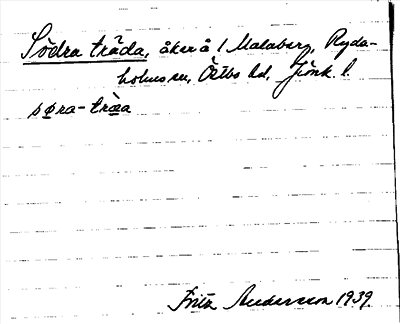 Södra träda, åker å 1 Malaberg, Ryda-
holms sn, Östbo hd, Jönk. l.
sø̱ra-trä̱a
Fritz Andersson 1939